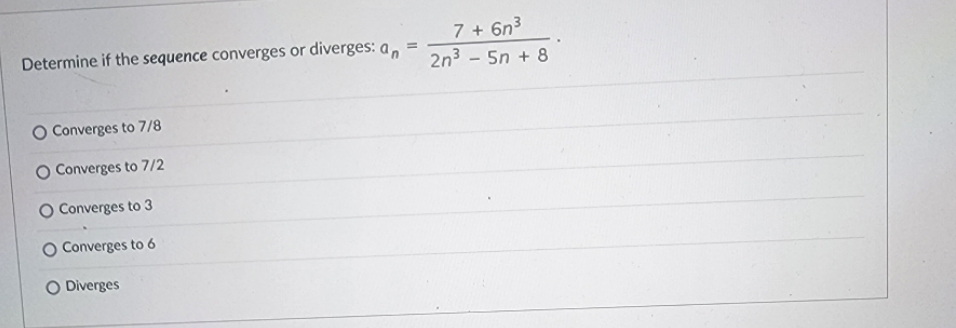 Determine if the sequence converges or diverges: aₙ = (7 + 6n³)/(2n³ − 5n + 8).
Converges to 7/8
Converges to 7/2
Converges to 3
Converges to 6
Diverges